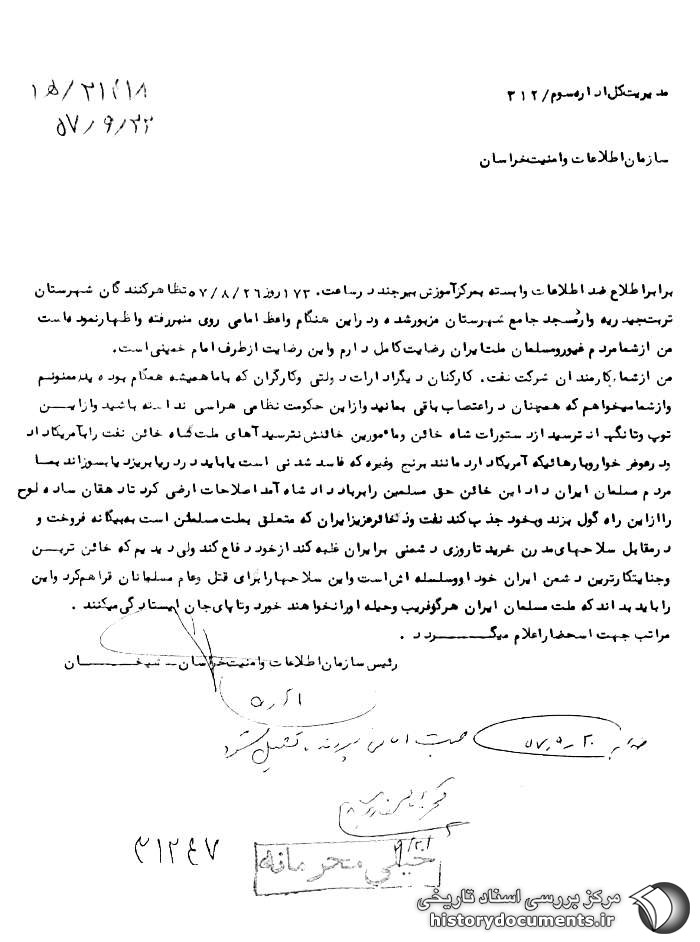 مدیریت کل اداره سوم / ۳۱۲
۱۵/۲۱۲۱۸
۵۷/۹/۲۲
سازمان اطلاعات وامنیت خراسان
برابر اطلاع ضد اطلاعات وابسته بمرکز آموزش بیرجند در ساعت ۱۷۳۰ روز ۵۷/۸/۲۶ تظاهرکنندگان شهرستان
تربت حیدریه وارد مسجد جامع شهرستان مزبور شده ودر این هنگام واعظ امامی روی منبر رفته واظهار نموده است
من از شما مردم غیور ومسلمان ملت ایران رضایت کامل دارم واین رضایت از طرف امام خمینی است .
من از شما کارمندان شرکت نفت . کارکنان دیگر ادارات دولتی وکارگران که با ما همیشه همگام بوده ید ممنونم
واز شما میخواهم که همچنان در اعتصاب باقی بمانید واز این حکومت نظامی هراسی نداشته باشید واز ایـــن
توپ وتانگها نترسید از دستورات شاه خائن ومأمورین خائنش نترسید آهای ملت شاه خائن نفت را بآمریکا داد
ودر عوض خواروبارهائیکه آمریکا دارد مانند برنج وغیره که فاسد شدنی است یا باید در دریا بریزد یا بسوزاند بمــا
مردم مسلمان ایران داد این خائن حق مسلمین را برباد داد شاه آمد اصلاحات ارضی کرد تا دهقان ساده لوح
را از این راه گول بزند وبخود جذب کند نفت وذخائر عزیز ایران که متعلق بملت مسلمان است به بیگانه فروخت و
در مقابل سلاحهای مدرن خرید تا روزی دشمنی بر ایران غلبه کند از خود دفاع کند ولی دیدیم که خائن تریــن
وجنایتکارترین دشمن ایران خود او وسلسله اش است واین سلاحها را برای قتل وعام مسلمانان فراهم کرد واین
را باید بداند که ملت مسلمان ایران هرگز فریب وحیله او را نخواهند خورد وتا پای جان ایستادگی میکنند .
مراتب جهت استحضار اعلام میگـــــــردد .
رئیس سازمان اطلاعات وامنیت خراسان ــ شیخـــــان
۵۷/۹/۲۰
۳۱۲۴۷
۹/۲۰
خیلی محرمانه
مرکز بررسی اسناد تاریخی
historydocuments.ir